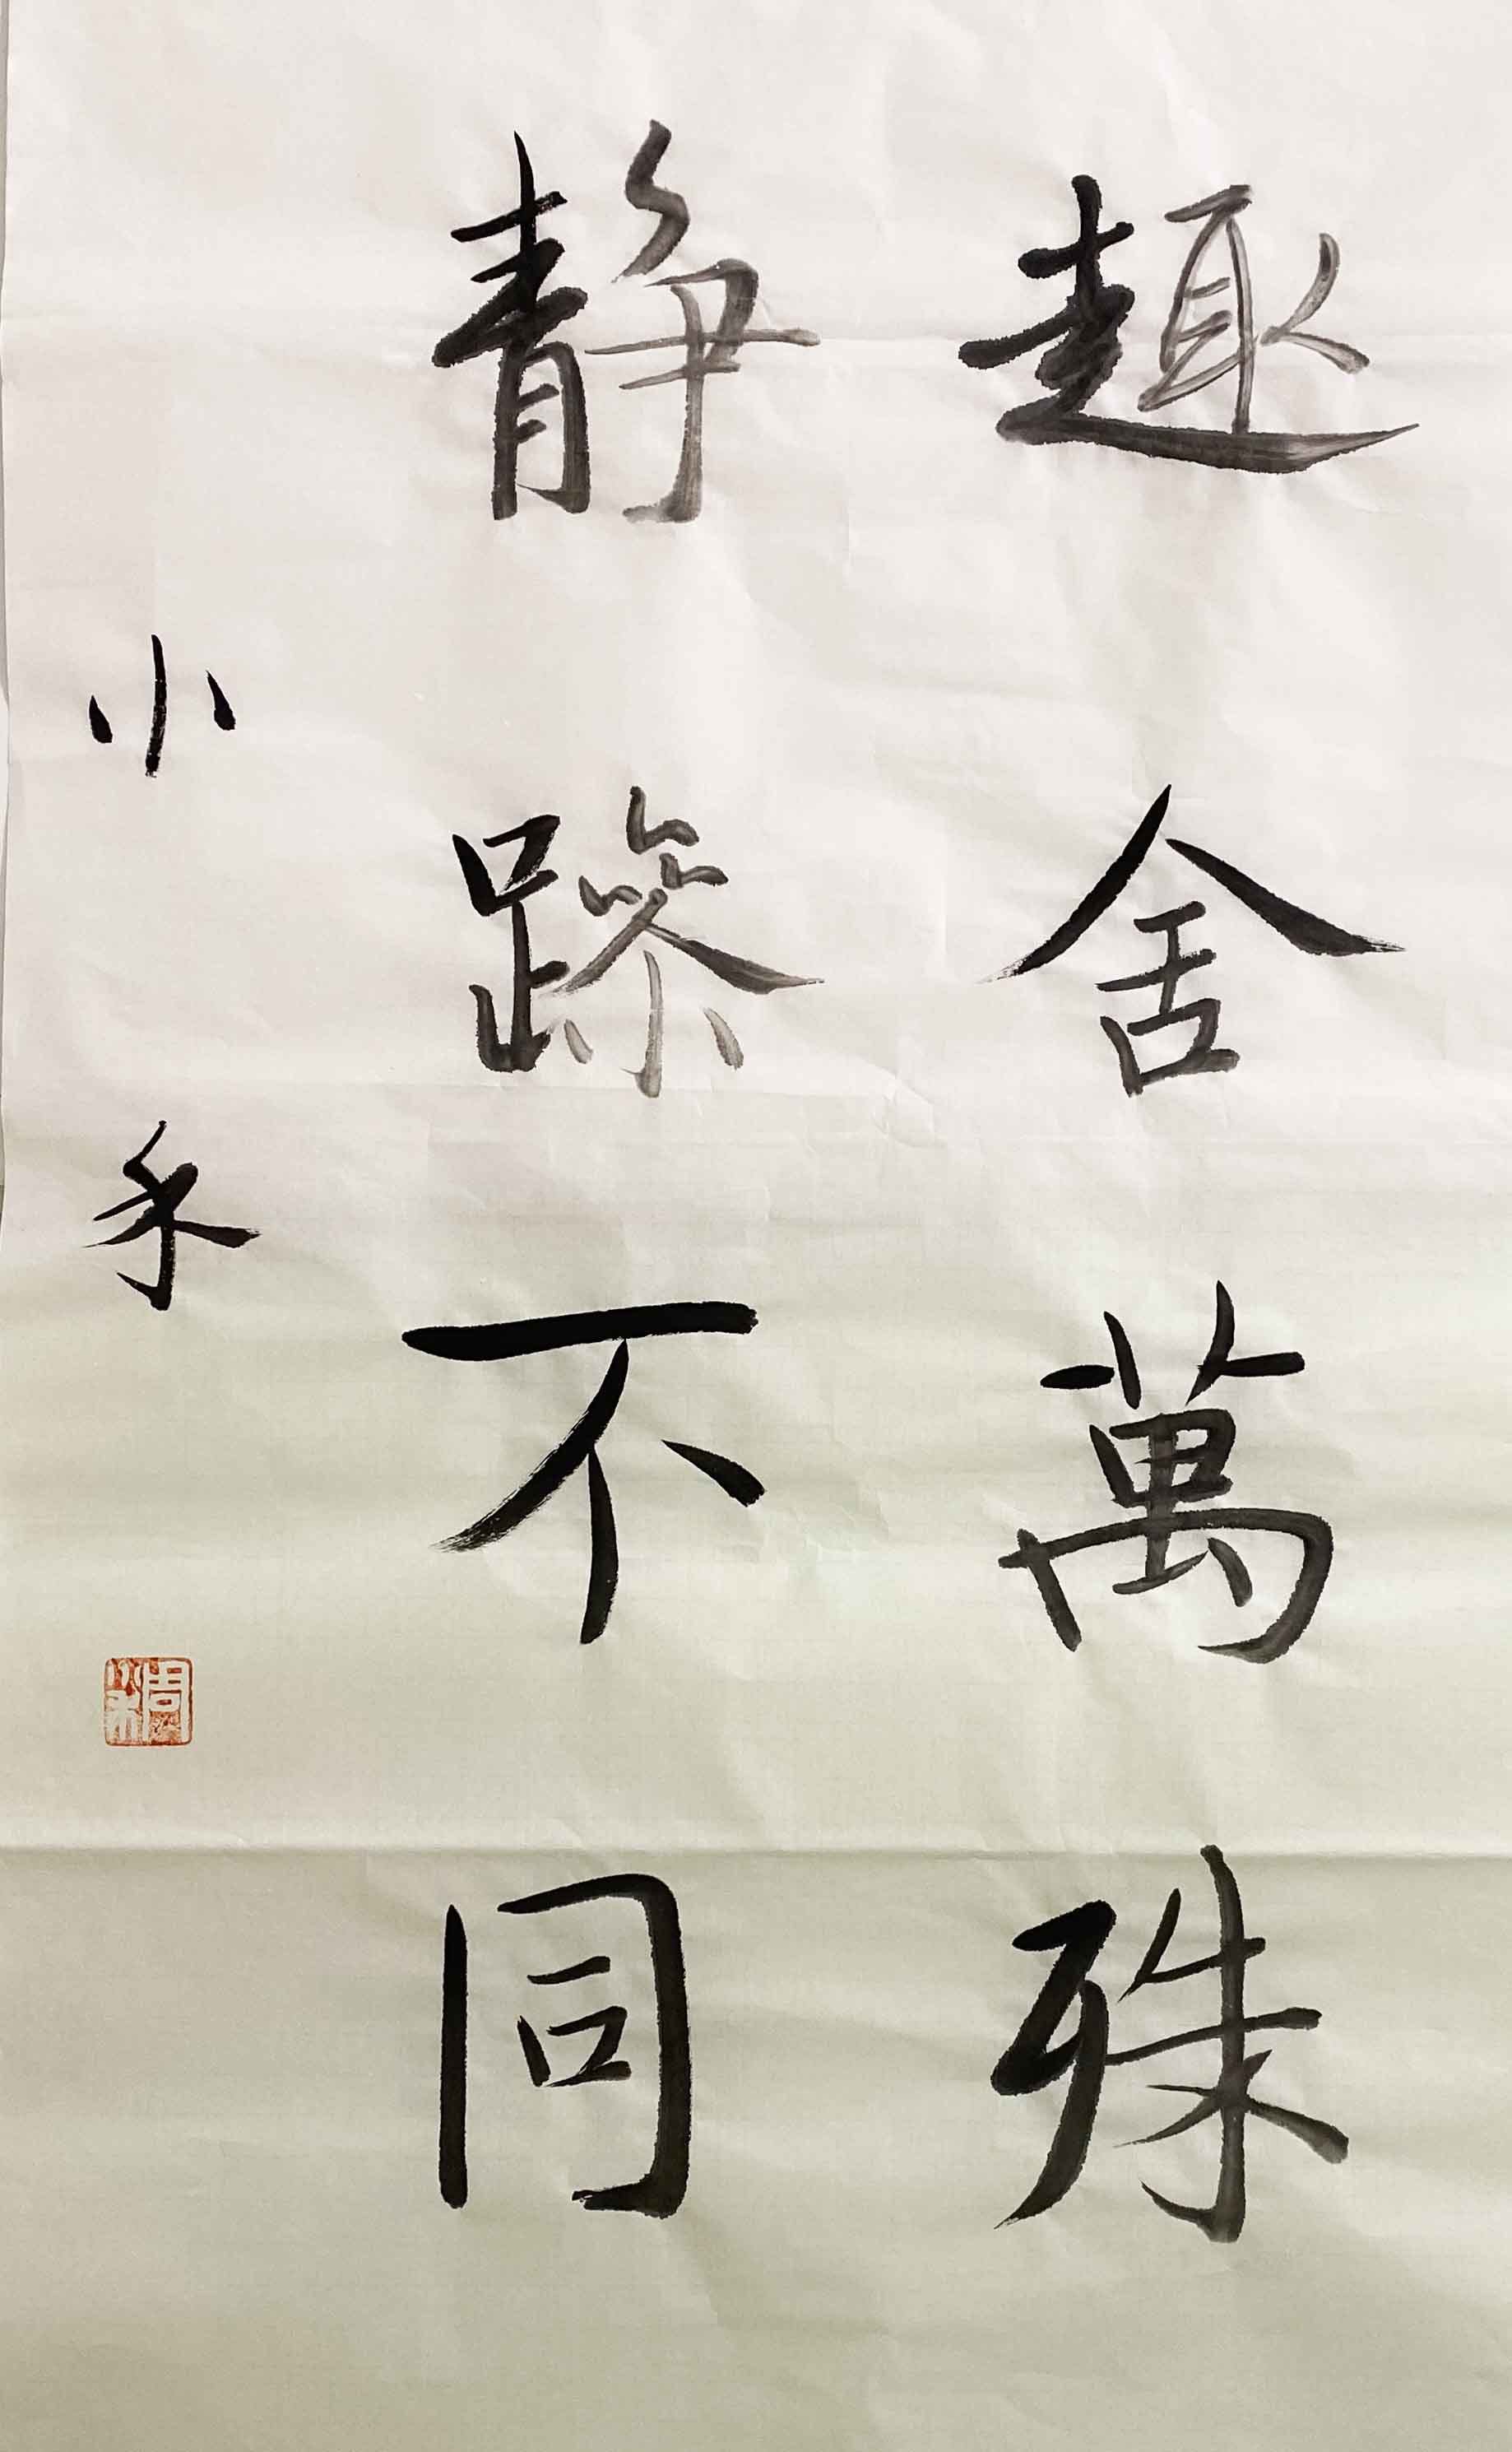 趣舍萬殊
靜躁不同
小禾